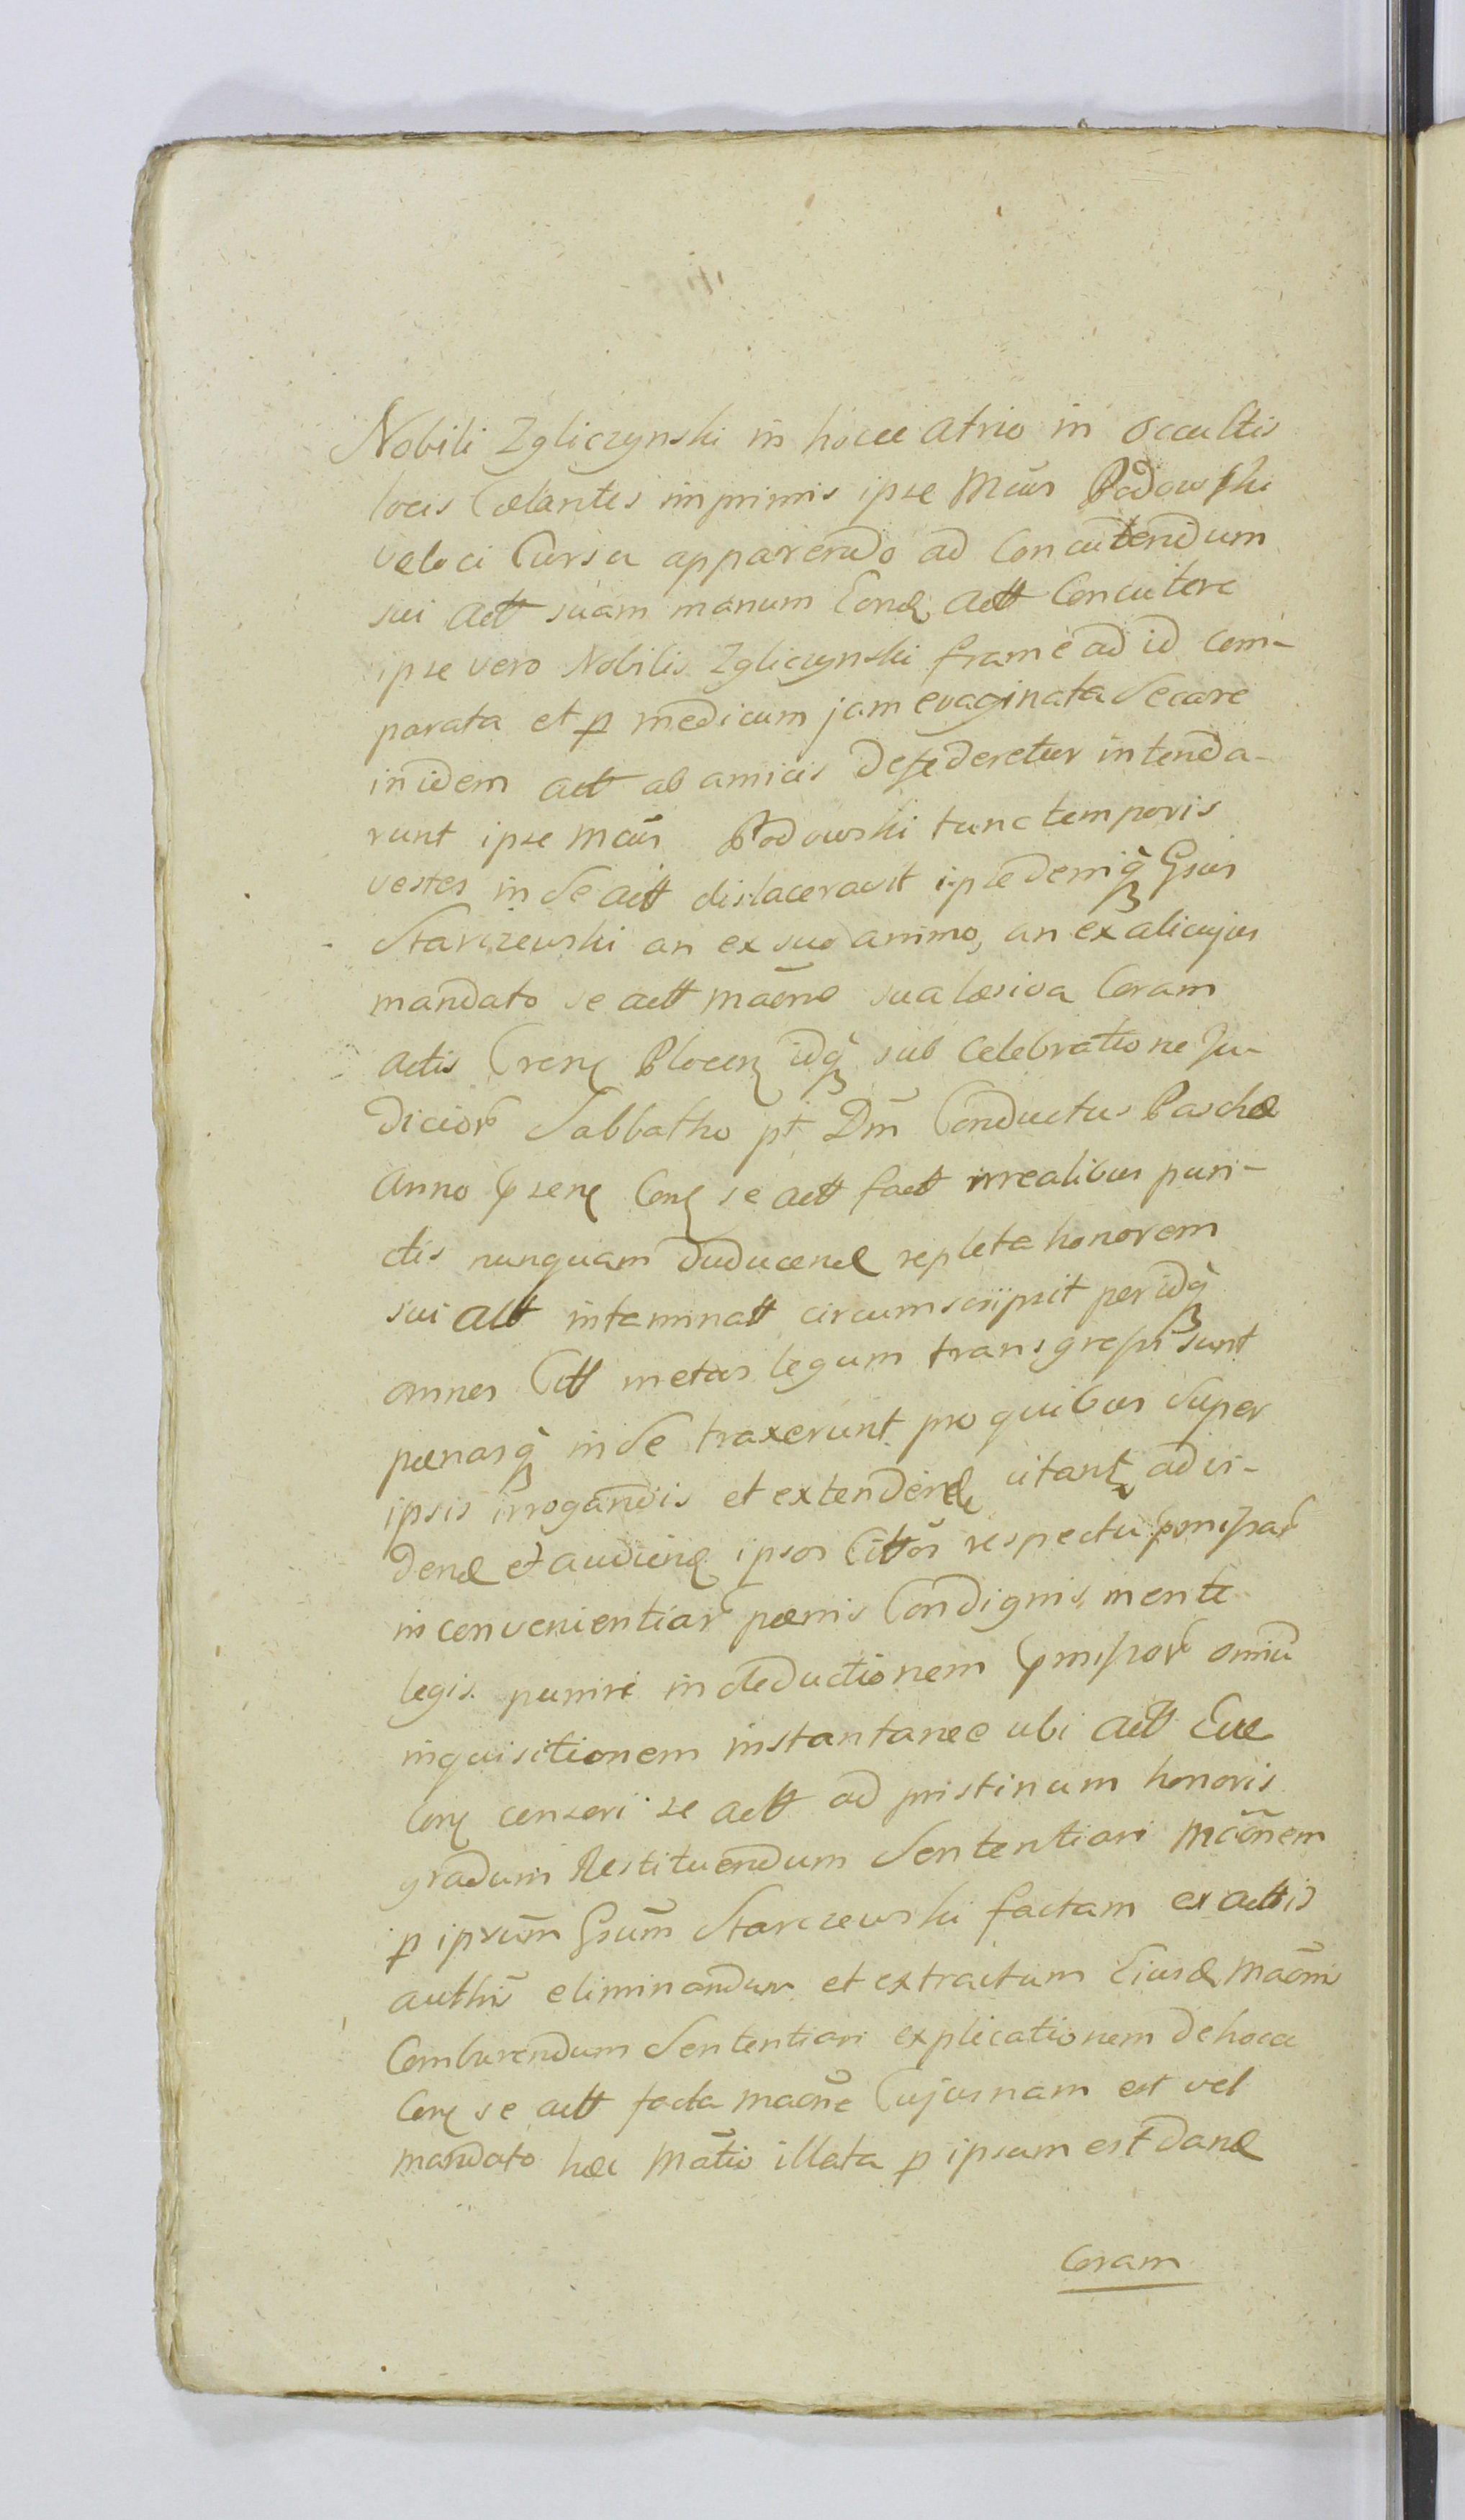 Nobili Zgliczynski in hocce atrio in occultis
locis Cælantes imprimis ipse Mcus Podowski
veloci Cursu apparendo ad Concutendum
sui Actt suam manum Cond Actt Concutere
ipse vero Nobilis Zgliczynski frameâ ad id Com-
parata et p medicum jam evaginata Secare
inidem actt ab amicis defederetur intenda-
runt ipse Mcus Podowski tunc temporis
vestes in Se actt dislaceravit ipse demiq Gsus
Starczewski an ex suo animo, an ex alicujus
mandato se actt maõne sua læsiva Coram
actis Cren Plocen idq sub Celebratione Ju-
dicior Sabbatho pt Dm̃ Conductus Paschæ
Anno psen Con se actt fact irrealibus pun-
ctis nunquam duducend repleta honorem
sui Actt intaminatt circumscripsit per idq
omnes Citt metas legum transgressi sunt
pænasq in Se traxerunt pro quibus Super
ipsis irrogandis et extendend citant ad vi-
dend et audiend ipsos Cittos respectu pmissar
inconvenientiar pænis Condignis, mente
legis punire in deductionem pmissor omniũ
inquisitionem instantanee ubi Actt Eve
Con censeri se actt ad pristinum honoris
gradum Restituendum Sententiari Mãõnem
p ipsum Gsum̃ Starczewski factam ex actis
authñ eliminandum et extractum Ejusd maõnis
Comburendum Sententiari explicationem de hocce
Con se actt facta maõne Cujusnam est vel
mandato hæc Mãtio illata p ipsum est dand
Coram